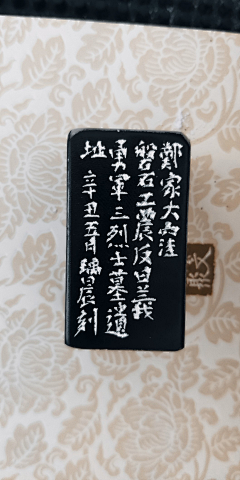 鄭家大
磐石工農反日義
勇軍三烈士墓遺
址 辛丑五月 瑀晨刻